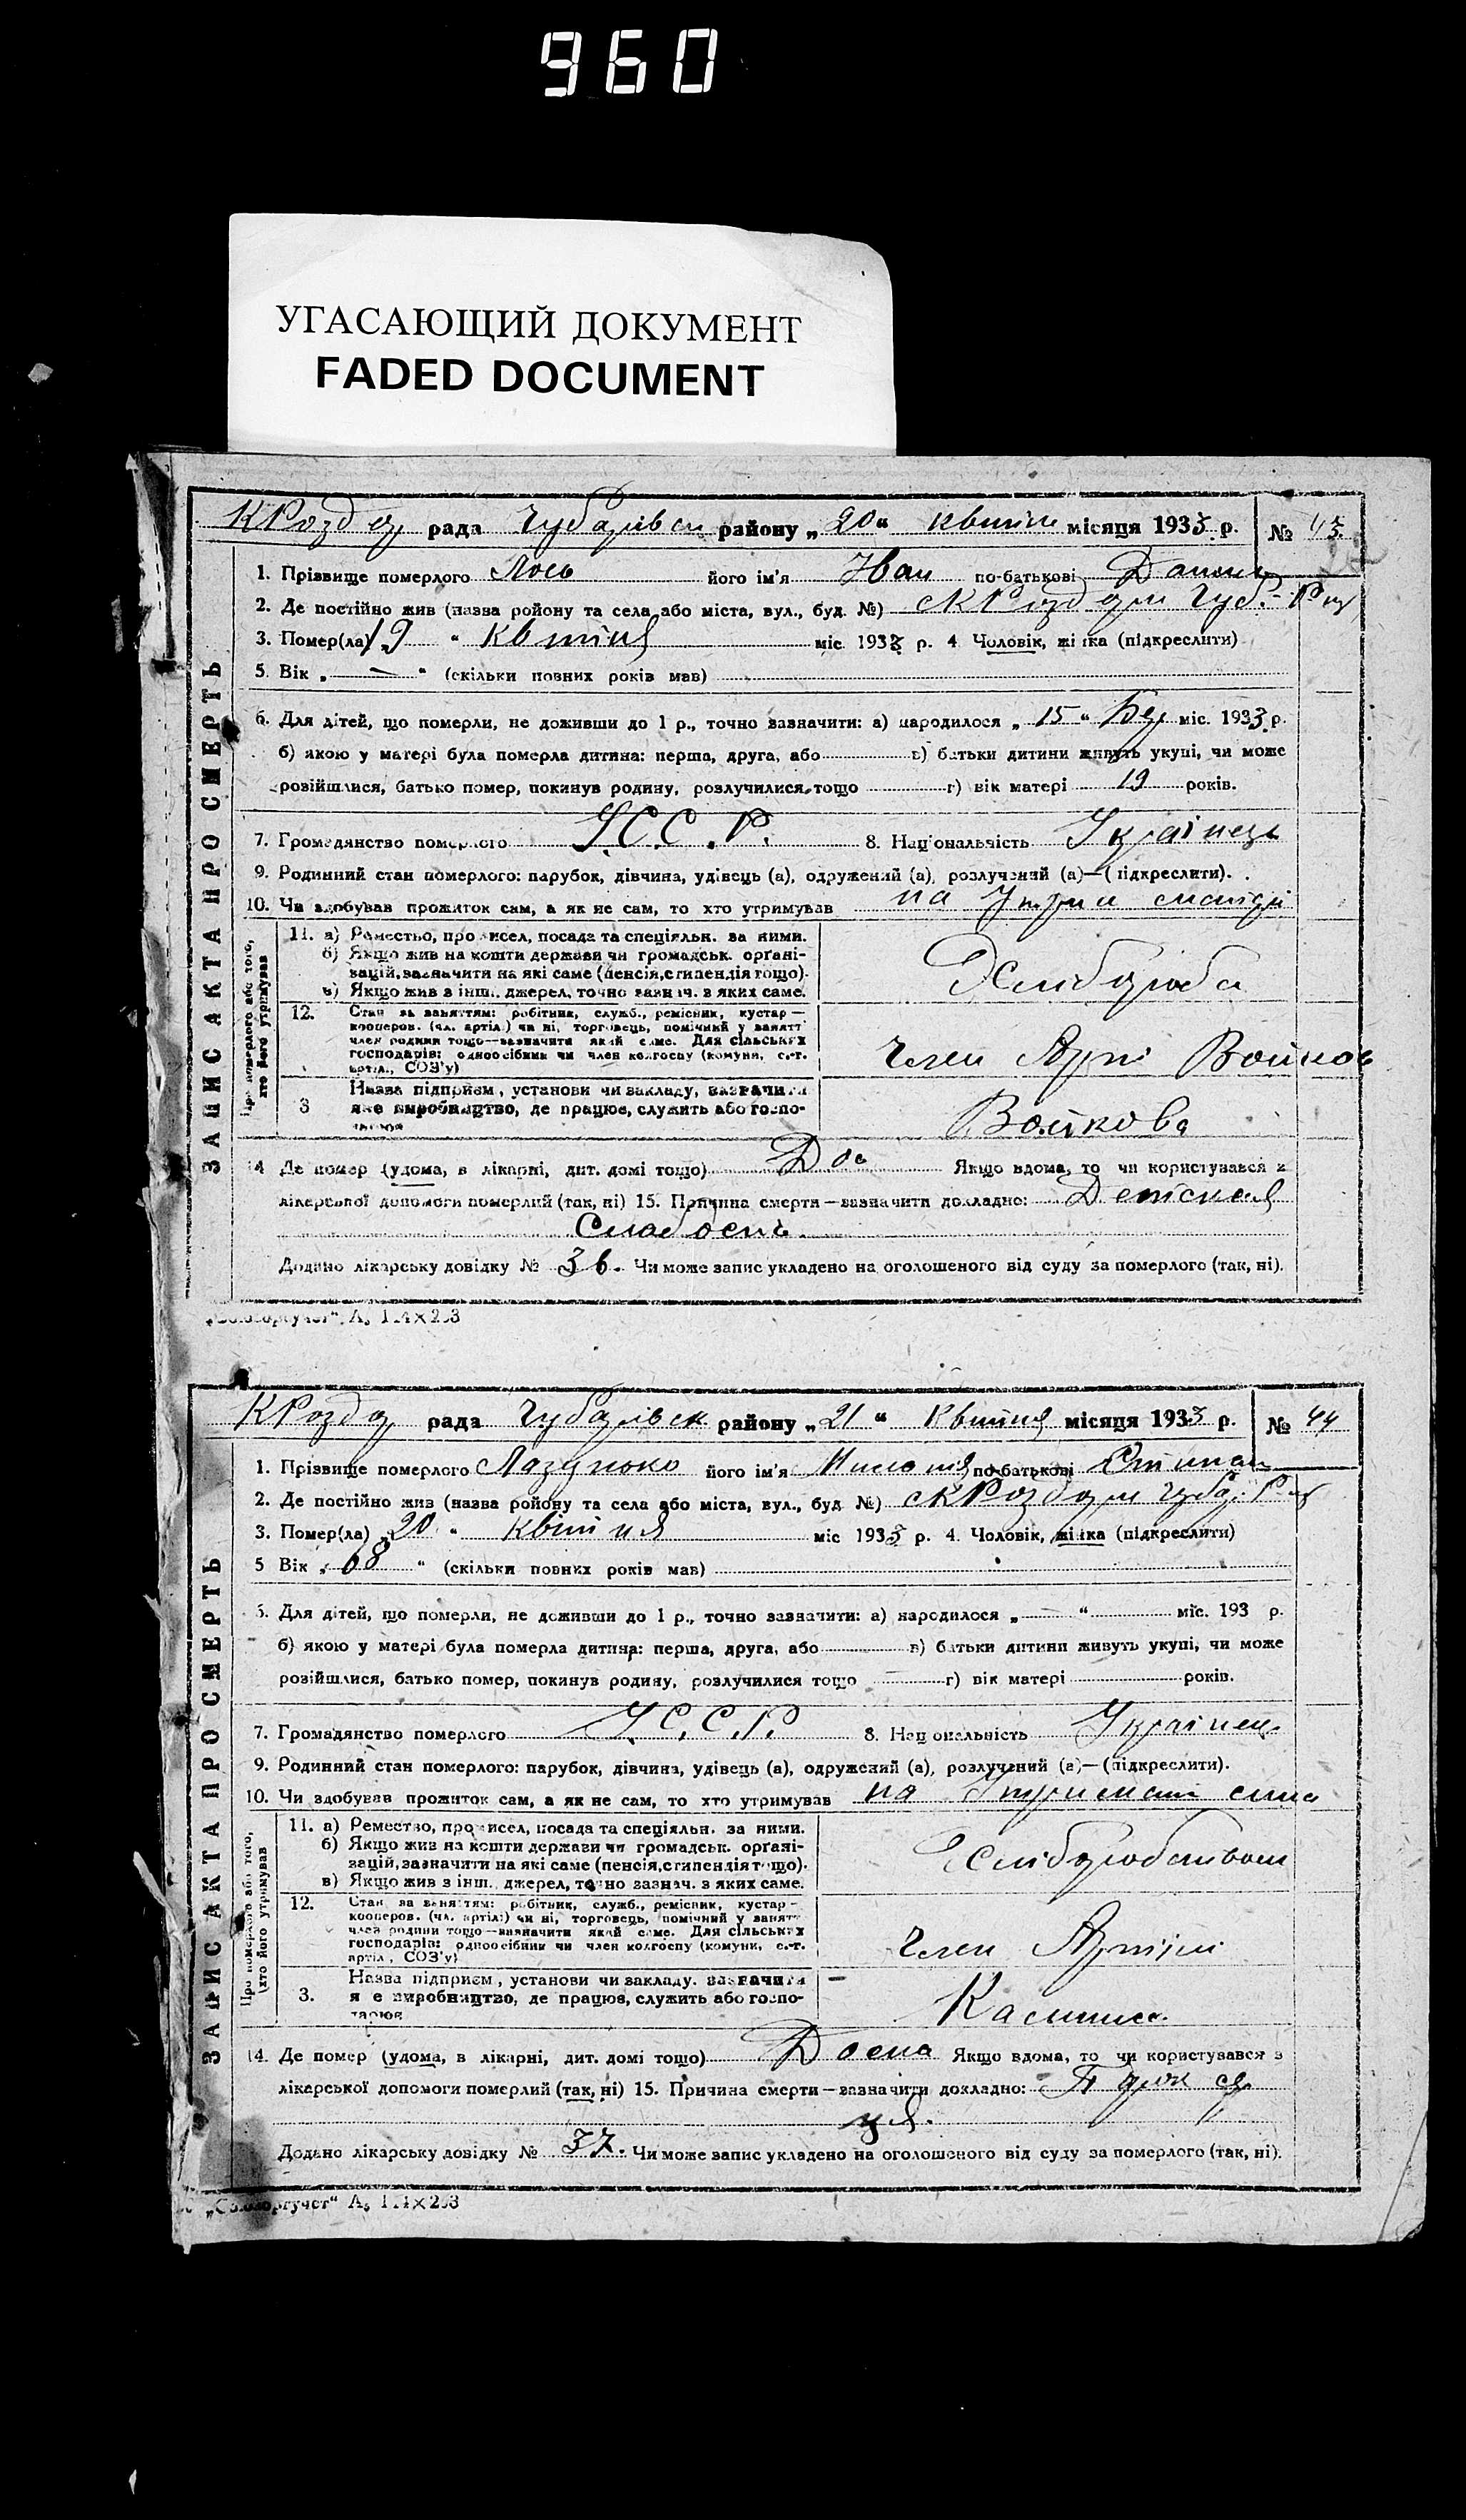 960
УГАСАЮЩИЙ ДОКУМЕНТ
FADED DOCUMENT
ЗАПИС АКТА ПРО СМЕРТЬ
КРозд рада Чубарівск району „20“ квітн місяця 1933 р. № 43
1. Прізвище померлого Лось його ім'я Іван по-батькові
2. Де постійно жив (назва ройону та села або міста, вул., буд. №) с КРоздори Чуб.
3. Помер(ла) 19 “ Квітня міс. 1933 р. 4 Чоловік, жінка (підкреслити)
5. Вік „ — “ (скільки повних років мав)
6. Для дітей, що померли, не доживши до 1 р., точно зазначити: а) народилося „ 15 “ Бер міс. 1933 р.
б) якою у матері була померла дитина: перша, друга, або в) батьки дитини живуть укупі, чи може
розійшлися, батько помер, покинув родину, розлучилися тощо г) вік матері 19 років.
7. Громадянство померлого У.С.С.Р. 8. Національність Українець
9. Родинний стан померлого: парубок, дівчина, удівець (а), одружений (а), розлучений (а)—(підкреслити).
10. Чи здобував прожиток сам, а як не сам, то хто утримував на
Про померлого або того, хто його утримував
11. а) Ремество, промисел, посада та спеціяльн. за ними.
б) Якщо жив на кошти держави чи громадськ. органі-
зацій, зазначити на які саме (пенсія, стипендія тощо).
в) Якщо жив з інш. джерел, точно зазнач. з яких саме.
Хлібороба
12. Стан за заняттям: робітник, служб., ремісник, кустар—
кооперов. (чл. артілі) чи ні, торговець, помічний у занятт
член родини тощо—зазначити який саме. Для сільських
господарів: одноосібник чи член колгоспу (комуни, с.-г.
артіл., СОЗ'у)
Член Арті
3 Назва підприєм., установи чи закладу, зазначити
яке виробництво, де працює, служить або госпо-
дарює
Войкова
14 Де помер (удома, в лікарні, дит. домі тощо) Якщо вдома, то чи користувався з
лікарської допомоги померлий (так, ні) 15. Причина смерти—зазначити докладно: Детская
Слабость.
Додано лікарську довідку № 36. Чи може запис укладено на оголошеного від суду за померлого (так, ні).
ЗАПИС АКТА ПРО СМЕРТЬ
КРозд рада Чубарівск району „21“ Квітня місяця 1933 р. № 44
1. Прізвище померлого Лазунько його ім'я по-батькові
2. Де постійно жив (назва ройону та села або міста, вул., буд №) с КРоздори Чубар.
3. Помер(ла) „20 “ квітня міс 1933 р. 4. Чоловік, жінка (підкреслити)
5 Вік „ 68 “ (скільки повних років мав)
6. Для дітей, що померли, не доживши до 1 р., точно зазначити: а) народилося „ “ міс. 193 р.
б) якою у матері була померла дитина: перша, друга, або в) батьки дитини живуть укупі, чи може
розійшлися, батько помер, покинув родину, розлучилися тощо г) вік матері років.
7. Громадянство померлого У.С.С.Р. 8. Національність Українец
9. Родинний стан померлого: парубок, дівчина, удівець (а), одружений (а), розлучений (а)—(підкреслити).
10. Чи здобував прожиток сам, а як не сам, то хто утримував на Утримані сина
Про померлого або того, хто його утримував
11. а) Ремество, промисел, посада та спеціяльн. за ними.
б) Якщо жив на кошти держави чи громадськ. органі-
зацій, зазначити на які саме (пенсія, стипендія тощо).
в) Якщо жив з інш. джерел, точно зазнач. з яких саме.
12. Стан за заняттям: робітник, служб., ремісник, кустар—
кооперов. (чл. артілі) чи ні, торговець, помічний у занятт
член родини тощо—зазначити який саме. Для сільських
господарів: одноосібник чи член колгоспу (комуни, с.-г.
артіл., СОЗ'у)
Член Артілі
3. Назва підприєм., установи чи закладу, зазначити
яке виробництво, де працює, служить або госпо-
дарює
14. Де помер (удома, в лікарні, дит. домі тощо) Дома Якщо вдома, то чи користувався з
лікарської допомоги померлий (так, ні) 15. Причина смерти—зазначити докладно:
Додано лікарську довідку № 37. Чи може запис укладено на оголошеного від суду за померлого (так, ні).